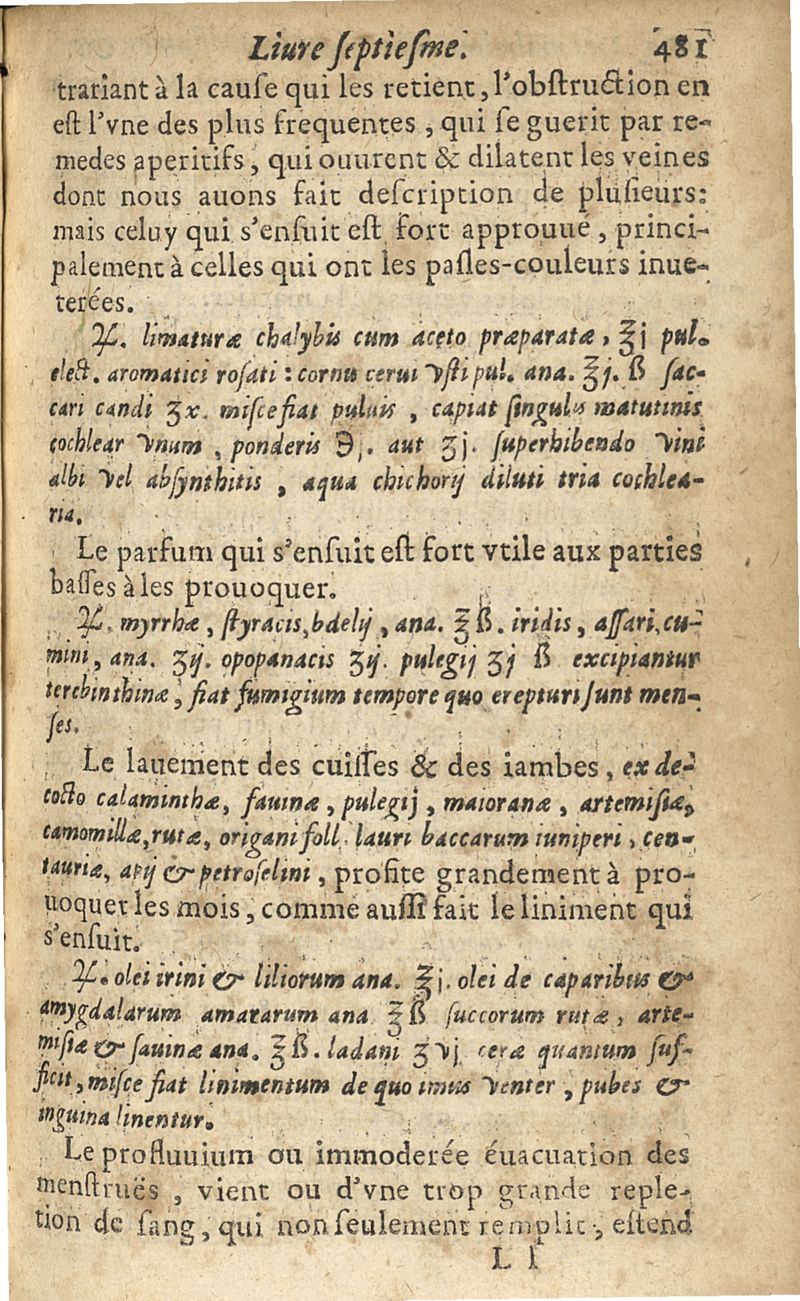 Liure ſeptieſme. 481
trariant à la cauſe qui les retient, l'obſtruction en
eſt l'vne des plus frequentes, qui ſe guerit par re-
medes aperitifs, qui ouurent & dilatent les veines
dont nous auons fait deſcription de pluſieurs:
mais celuy qui s'enſuit eſt fort approuué, princi-
palement à celles qui ont les paſles-couleurs inue-
terées.
℞. limaturæ chalybis cum aceto præparatæ, ℥j pul.
elect. aromatici roſati: cornu cerui vſti pul. ana. ʒj. ß ſac-
cari candi ʒx. miſce fiat puluis, capiat ſingulis matutinis
cochlear vnum, ponderis ℈j. aut ʒj. ſuperhibendo vini
albi vel abſynthitis, aqua chichorij diluti tria cochlea-
ria.
Le parfum qui s'enſuit eſt fort vtile aux parties
baſſes à les prouoquer.
℞. myrrhæ, ſtyracis, bdelij, ana. ℥ß. iridis, aſſari, cu-
mini, ana. ʒij. opopanacis ʒij. pulegij ʒj ß excipiantur
terebinthinæ, fiat fumigium tempore quo erepturi ſunt men-
ſes.
Le lauement des cuiſſes & des iambes, ex de-
cocto calaminthæ, ſauinæ, pulegij, maioranæ, artemiſiæ,
camomillæ, rutæ, origani foll. lauri baccarum iuniperi, cen-
tauriæ, apij & petroſelini, profite grandement à pro-
uoquer les mois, comme auſſi fait le liniment qui
s'enſuit.
℞. olei irini & liliorum ana. ℥j. olei de caparibus &
amygdalarum amararum ana ℥ß ſuccorum rutæ, arte-
miſiæ & ſauinæ ana. ℥ß. ladani ʒvj ceræ quantum ſuf-
ficit, miſce fiat linimentum de quo imus venter, pubes &
inguina linentur.
Le profluuium ou immoderée éuacuation des
menſtruës, vient ou d'vne trop grande reple-
tion de ſang, qui non ſeulement remplit, eſtend
L l